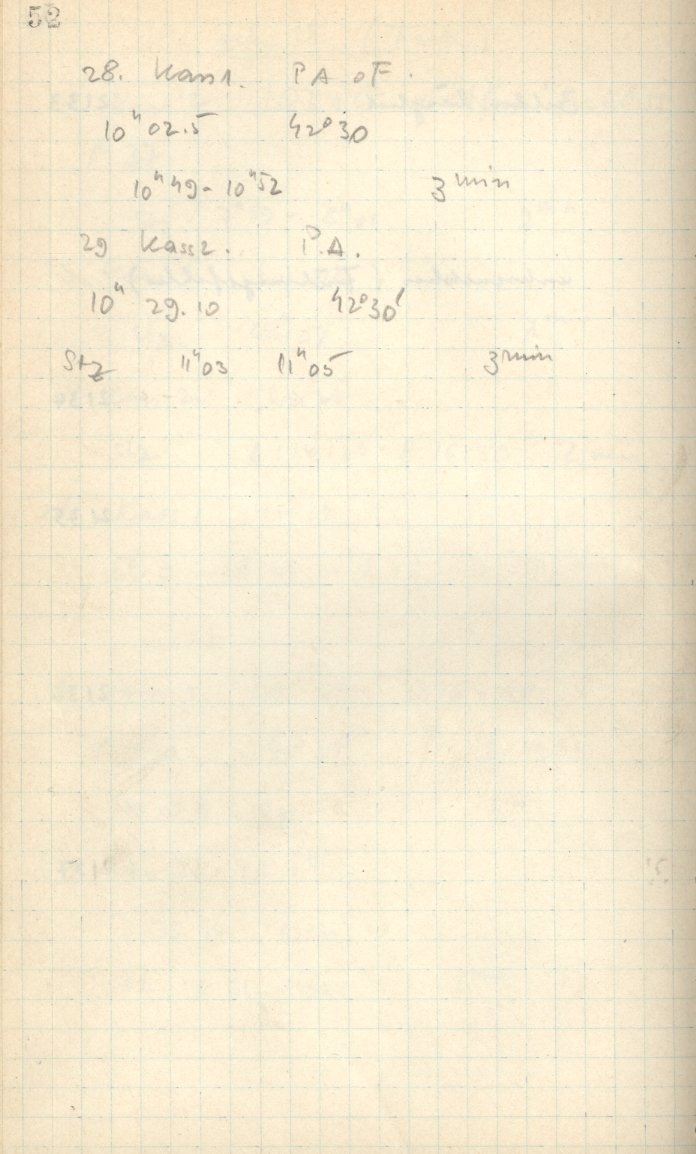 52
28. Kass1. P A oF.
10ʰ 02.5 42°30
10ʰ49 - 10ʰ52 3 min
29 Kass2. P.A.
10ʰ 29.10 42°30'
Stz 11ʰ03 11ʰ05 3 min